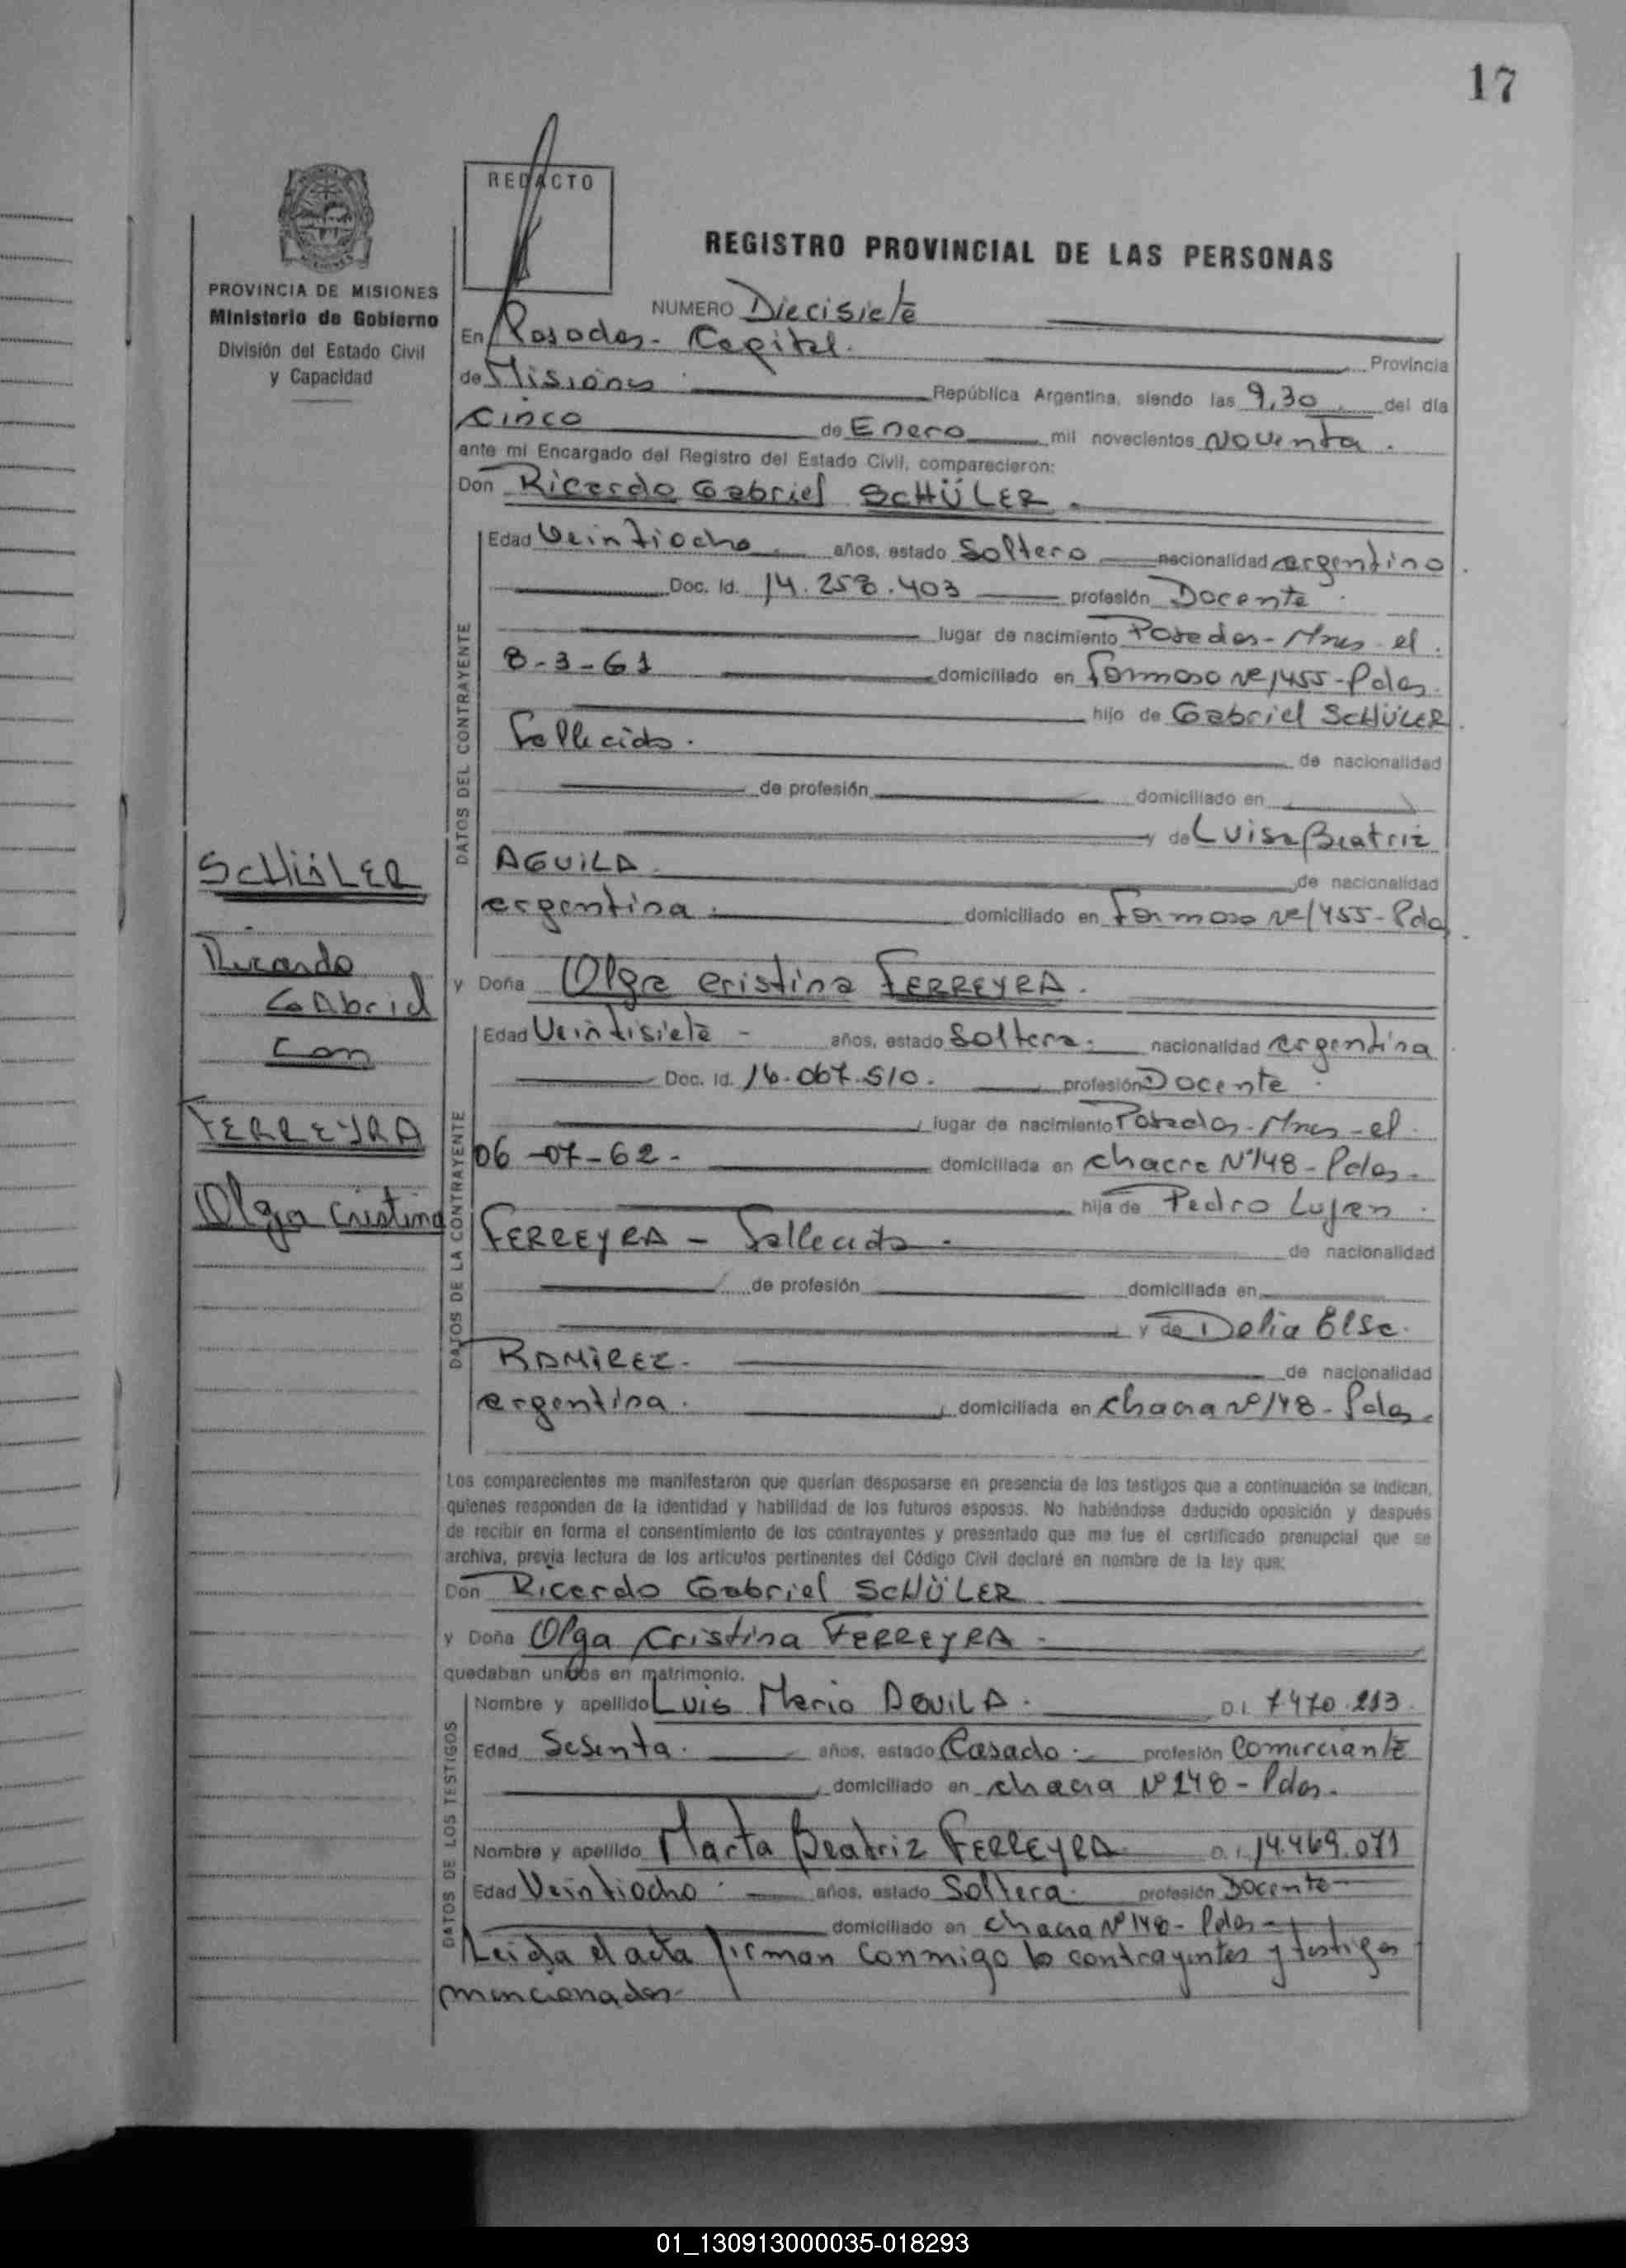 17
REDACTO
REGISTRO PROVINCIAL DE LAS PERSONAS
PROVINCIA DE MISIONES
Ministerio de Gobierno
División del Estado Civil
y Capacidad
NUMERO Diecisiete
En Posadas - Capital. Provincia
de Misiones República Argentina, siendo las 9,30 del día
cinco de Enero mil novecientos noventa.
ante mi Encargado del Registro del Estado Civil, comparecieron:
Don Ricardo Gabriel SCHÜLER.
DATOS DEL CONTRAYENTE
Edad Veintiocho años, estado Soltero nacionalidad argentino.
Doc. Id. 14.258.403 profesión Docente.
lugar de nacimiento Posadas - Mnes - el.
8-3-61 domiciliado en Formosa Nº 1455 - Pdas.
hijo de Gabriel SCHÜLER.
Fallecido. de nacionalidad
de profesión domiciliado en
y de Luisa Beatriz
AGUILA. de nacionalidad
argentina. domiciliado en Formosa Nº 1455 - Pdas.
SCHÜLER
Ricardo
Gabriel
con
FERREYRA
Olga Cristina
y Doña Olga Cristina FERREYRA.
DATOS DE LA CONTRAYENTE
Edad Veintisiete - años, estado Soltera. nacionalidad argentina
Doc. Id. 16.067.510. profesión Docente.
lugar de nacimiento Posadas - Mnes - el.
06-07-62. domiciliada en chacra Nº 148 - Pdas.
hija de Pedro Lujan.
FERREYRA - Fallecido. de nacionalidad
de profesión domiciliada en
y de Delia Elsa.
RAMIREZ. de nacionalidad
argentina. domiciliada en chacra Nº 148 - Pdas.
Los comparecientes me manifestaron que querían desposarse en presencia de los testigos que a continuación se indican,
quienes responden de la identidad y habilidad de los futuros esposos. No habiéndose deducido oposición y después
de recibir en forma el consentimiento de los contrayentes y presentado que me fue el certificado prenupcial que se
archiva, previa lectura de los artículos pertinentes del Código Civil declaré en nombre de la ley que:
Don Ricardo Gabriel SCHÜLER
y Doña Olga Cristina FERREYRA.
quedaban unidos en matrimonio.
DATOS DE LOS TESTIGOS
Nombre y apellido Luis Mario DAVILA. D.I. 7.470.213.
Edad Sesenta. años, estado Casado. profesión Comerciante
domiciliado en chacra Nº 148 - Pdas.
Nombre y apellido Marta Beatriz FERREYRA D.I. 14.469.071
Edad Veintiocho. años, estado Soltera. profesión Docente
domiciliado en chacra Nº 148 - Pdas.
Leida el acta firman conmigo los contrayentes y testigos
mencionados.
01_130913000035-018293